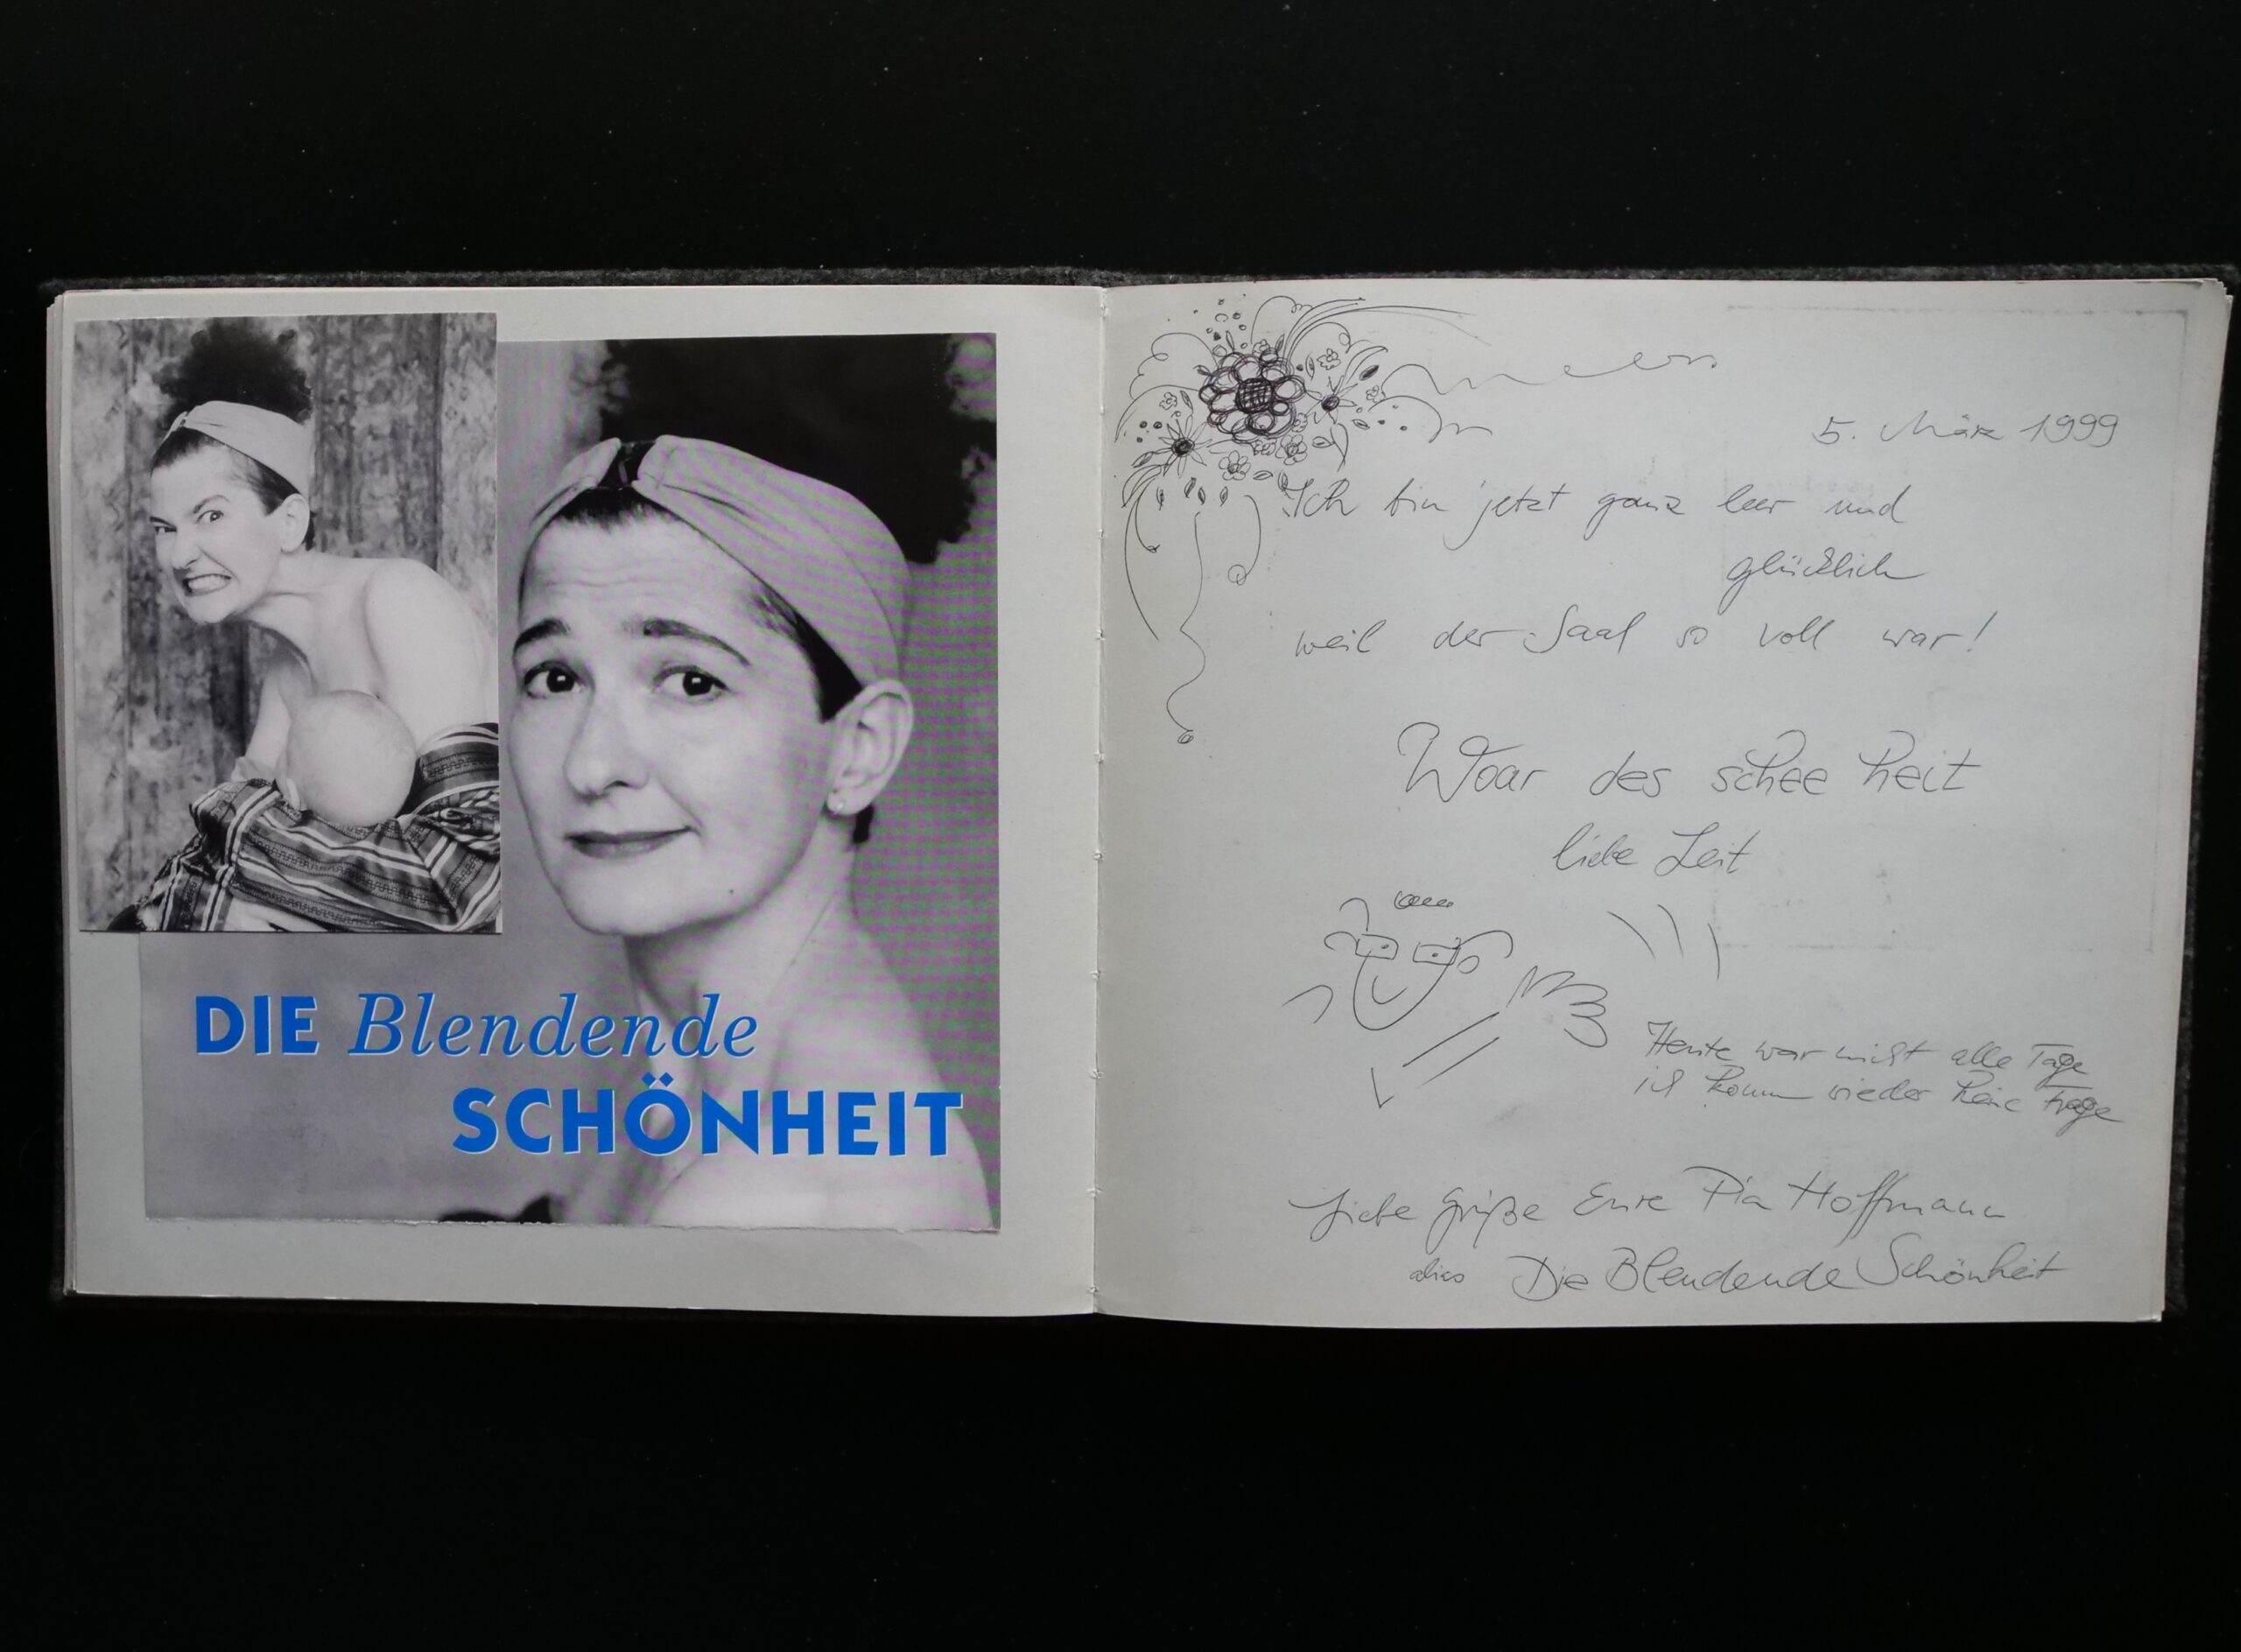 DIE Blendende
SCHÖNHEIT
5. März 1999
Ich bin jetzt ganz leer und
glücklich
weil der Saal so voll war!
Woar des schee heit
liebe Leit
Heute war nicht alle Tage
ich komm wieder keine Frage
Liebe Grüße Eure Pia Hoffmann
alias Die Blendende Schönheit